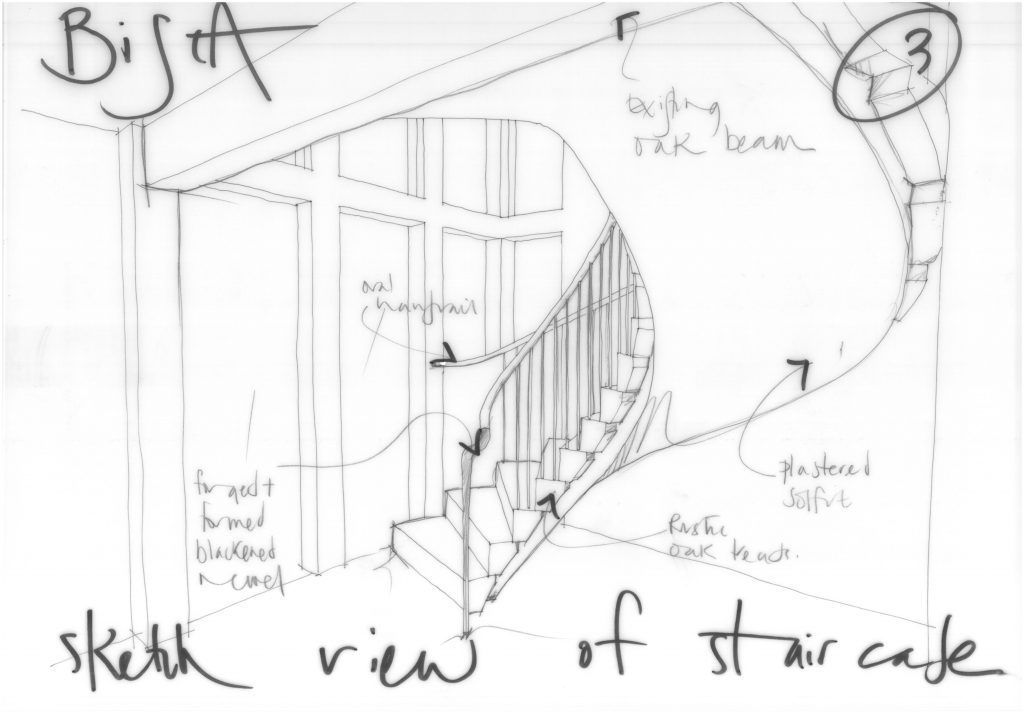 BiStA
3
existing
oak beam
oval
handrail
forged +
formed
blackened
newel
plastered
soffit
Rustic
oak treads.
sketch view of staircase